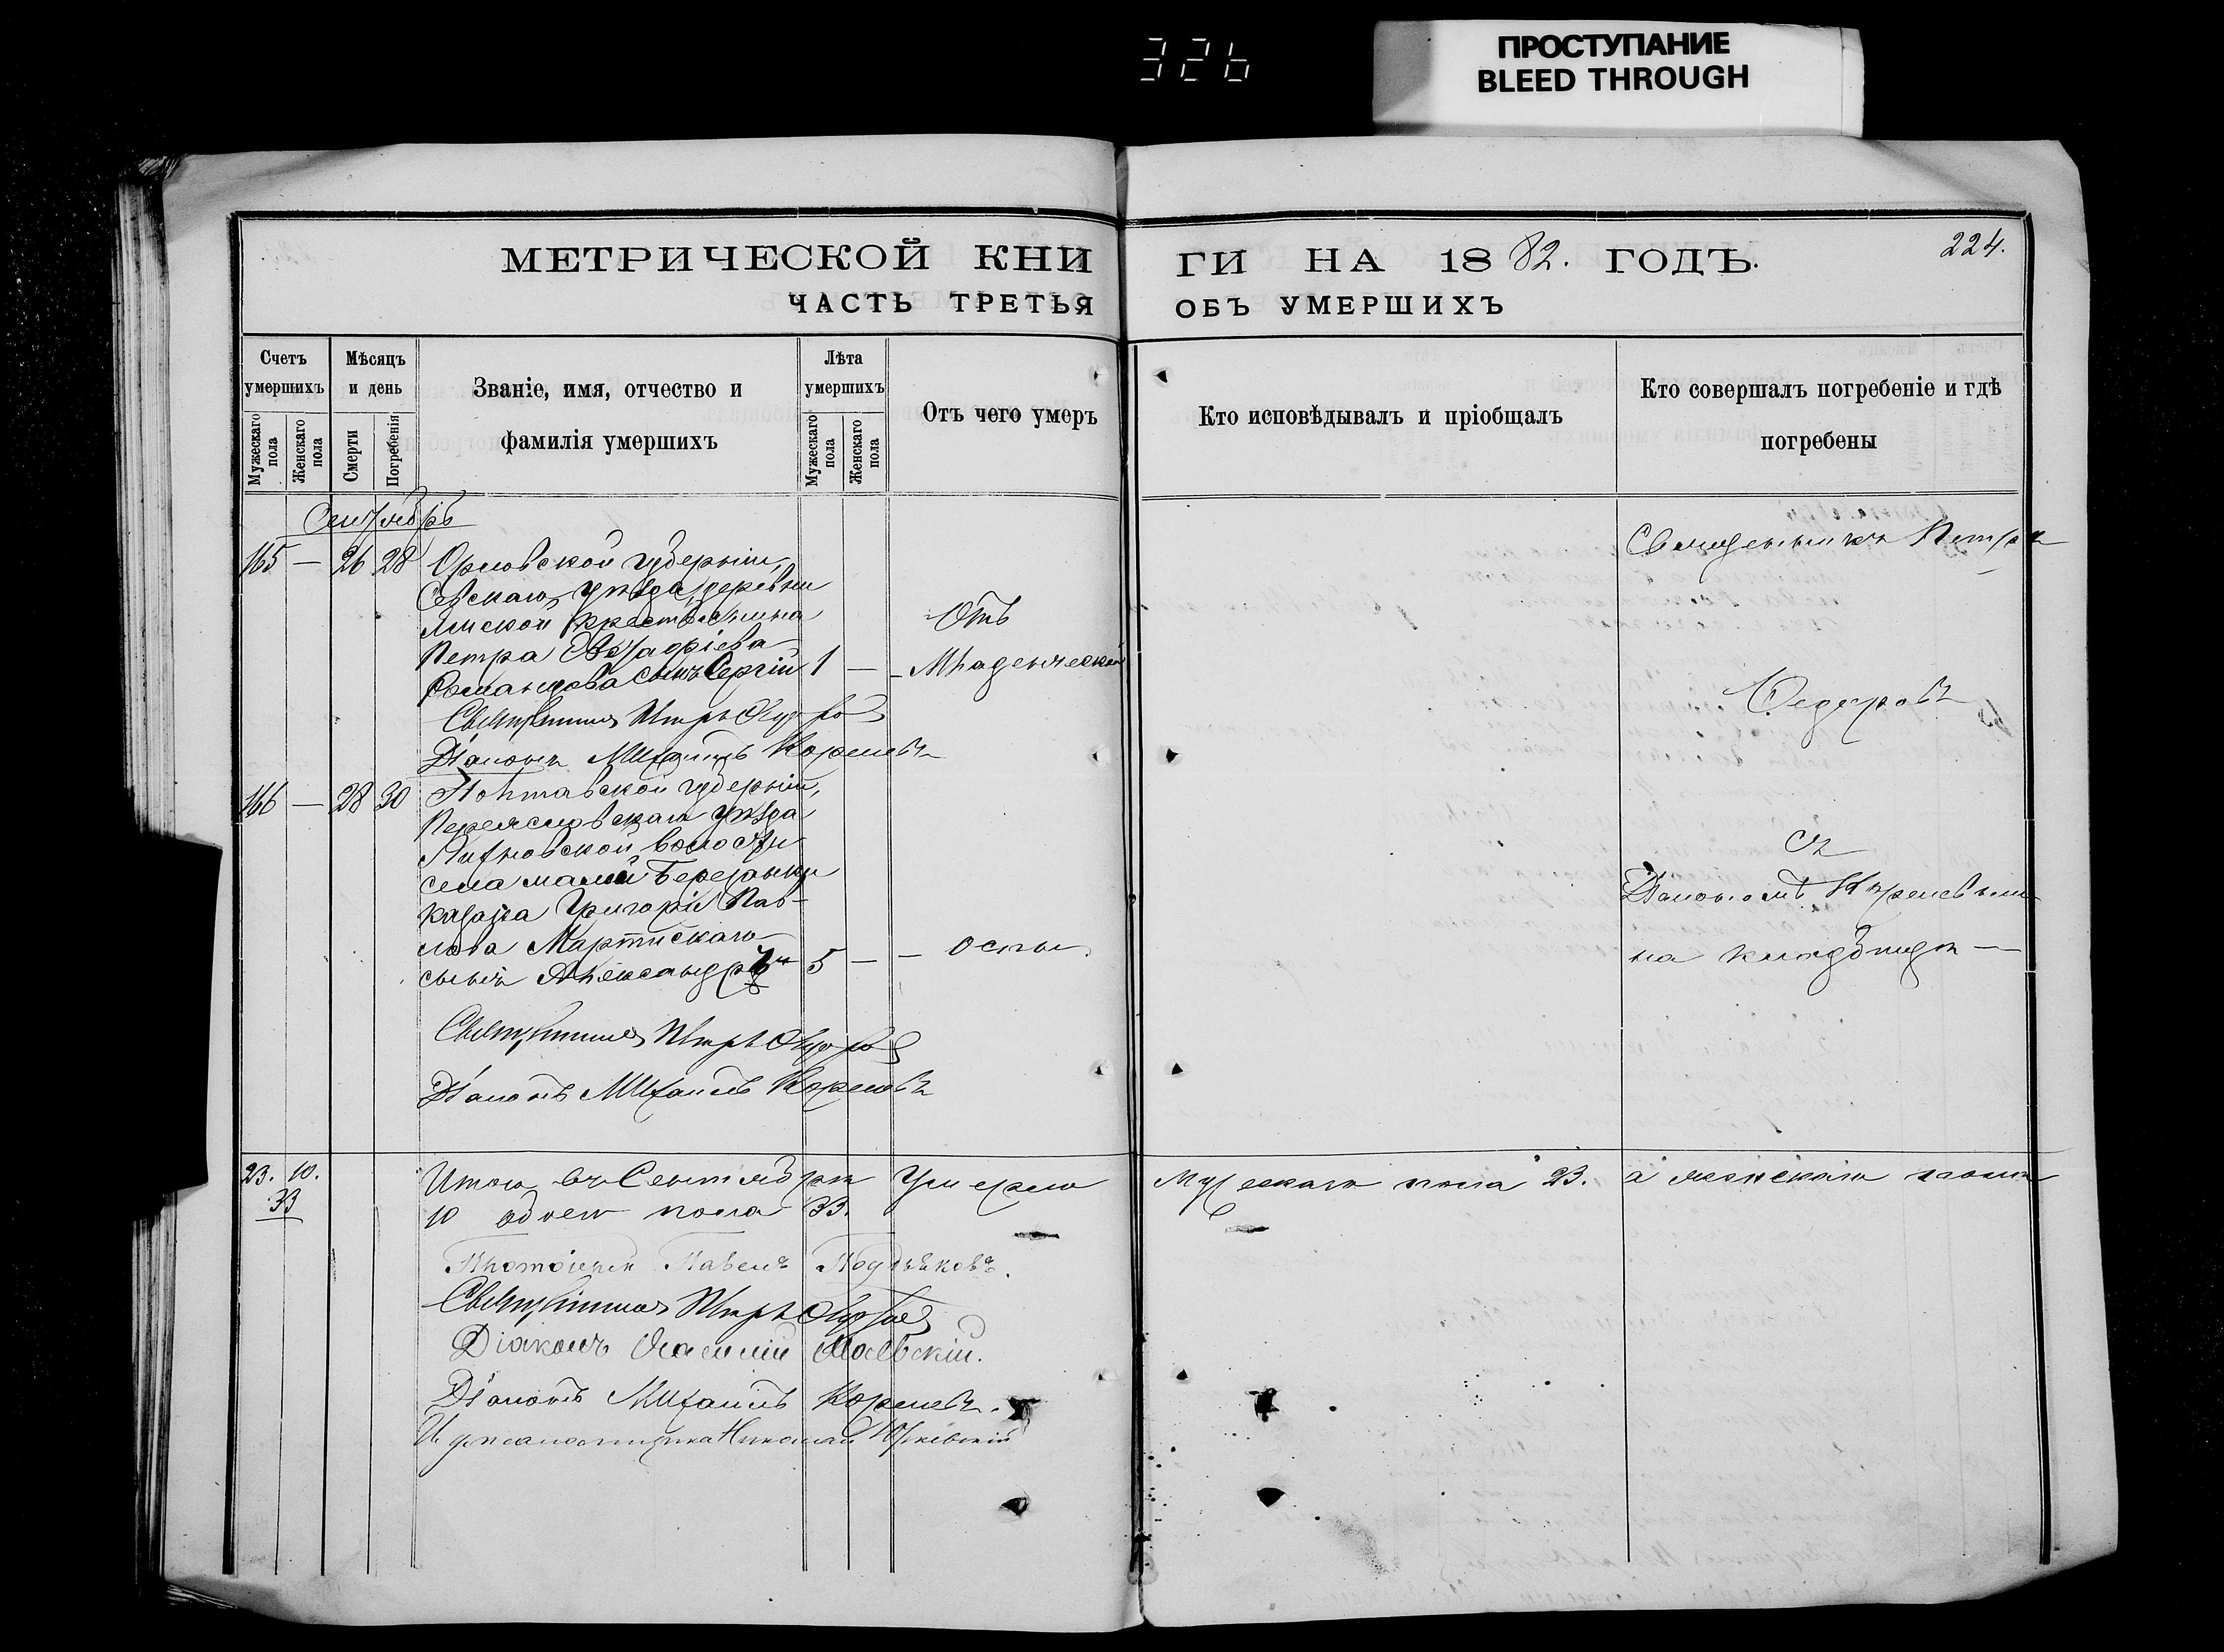 326
ПРОСТУПАНИЕ
BLEED THROUGH
МЕТРИЧЕСКОЙ КНИГИ НА 1882. ГОДЪ.
224.
ЧАСТЬ ТРЕТЬЯ ОБЪ УМЕРШИХЪ
Счетъ умершихъ
Мужескаго пола
Женскаго пола
Мѣсяцъ и день
Смерти
Погребенія
Званіе, имя, отчество и фамилія умершихъ
Лѣта умершихъ
Мужескаго пола
Женскаго пола
Отъ чего умеръ
Кто исповѣдывалъ и пріобщалъ
Кто совершалъ погребеніе и гдѣ погребены
Сентябрь
165 — 26 28 Орловской губерніи,
Севскаго уѣзда, деревни
Ямской крестьянина
Петра Евграфіева
сынъ Сергій 1 —
Отъ
Младенческой
Священникъ Петръ Федоровъ
Діаконъ Михаилъ Кореневъ
166 — 28 30 Полтавской губерніи,
Переясловскаго уѣзда
волости
села малой Березанки
казака Григорія Пав-
лова
сынъ Александръ 5 — — оспы
Священникъ Петръ Федоровъ
Діаконъ Михаилъ Кореневъ
Священникъ Петръ
Федоровъ
съ
Діакономъ Кореневымъ
на кладбищѣ —
23. 10.
33
Итого въ Сентябрѣ умерло мужескаго пола 23. а женскаго пола
10 обоего пола 33.
Протоіерей Павелъ
Священникъ Петръ Федоровъ
Діаконъ
Діаконъ Михаилъ Кореневъ.
И. д. псаломщика Николай